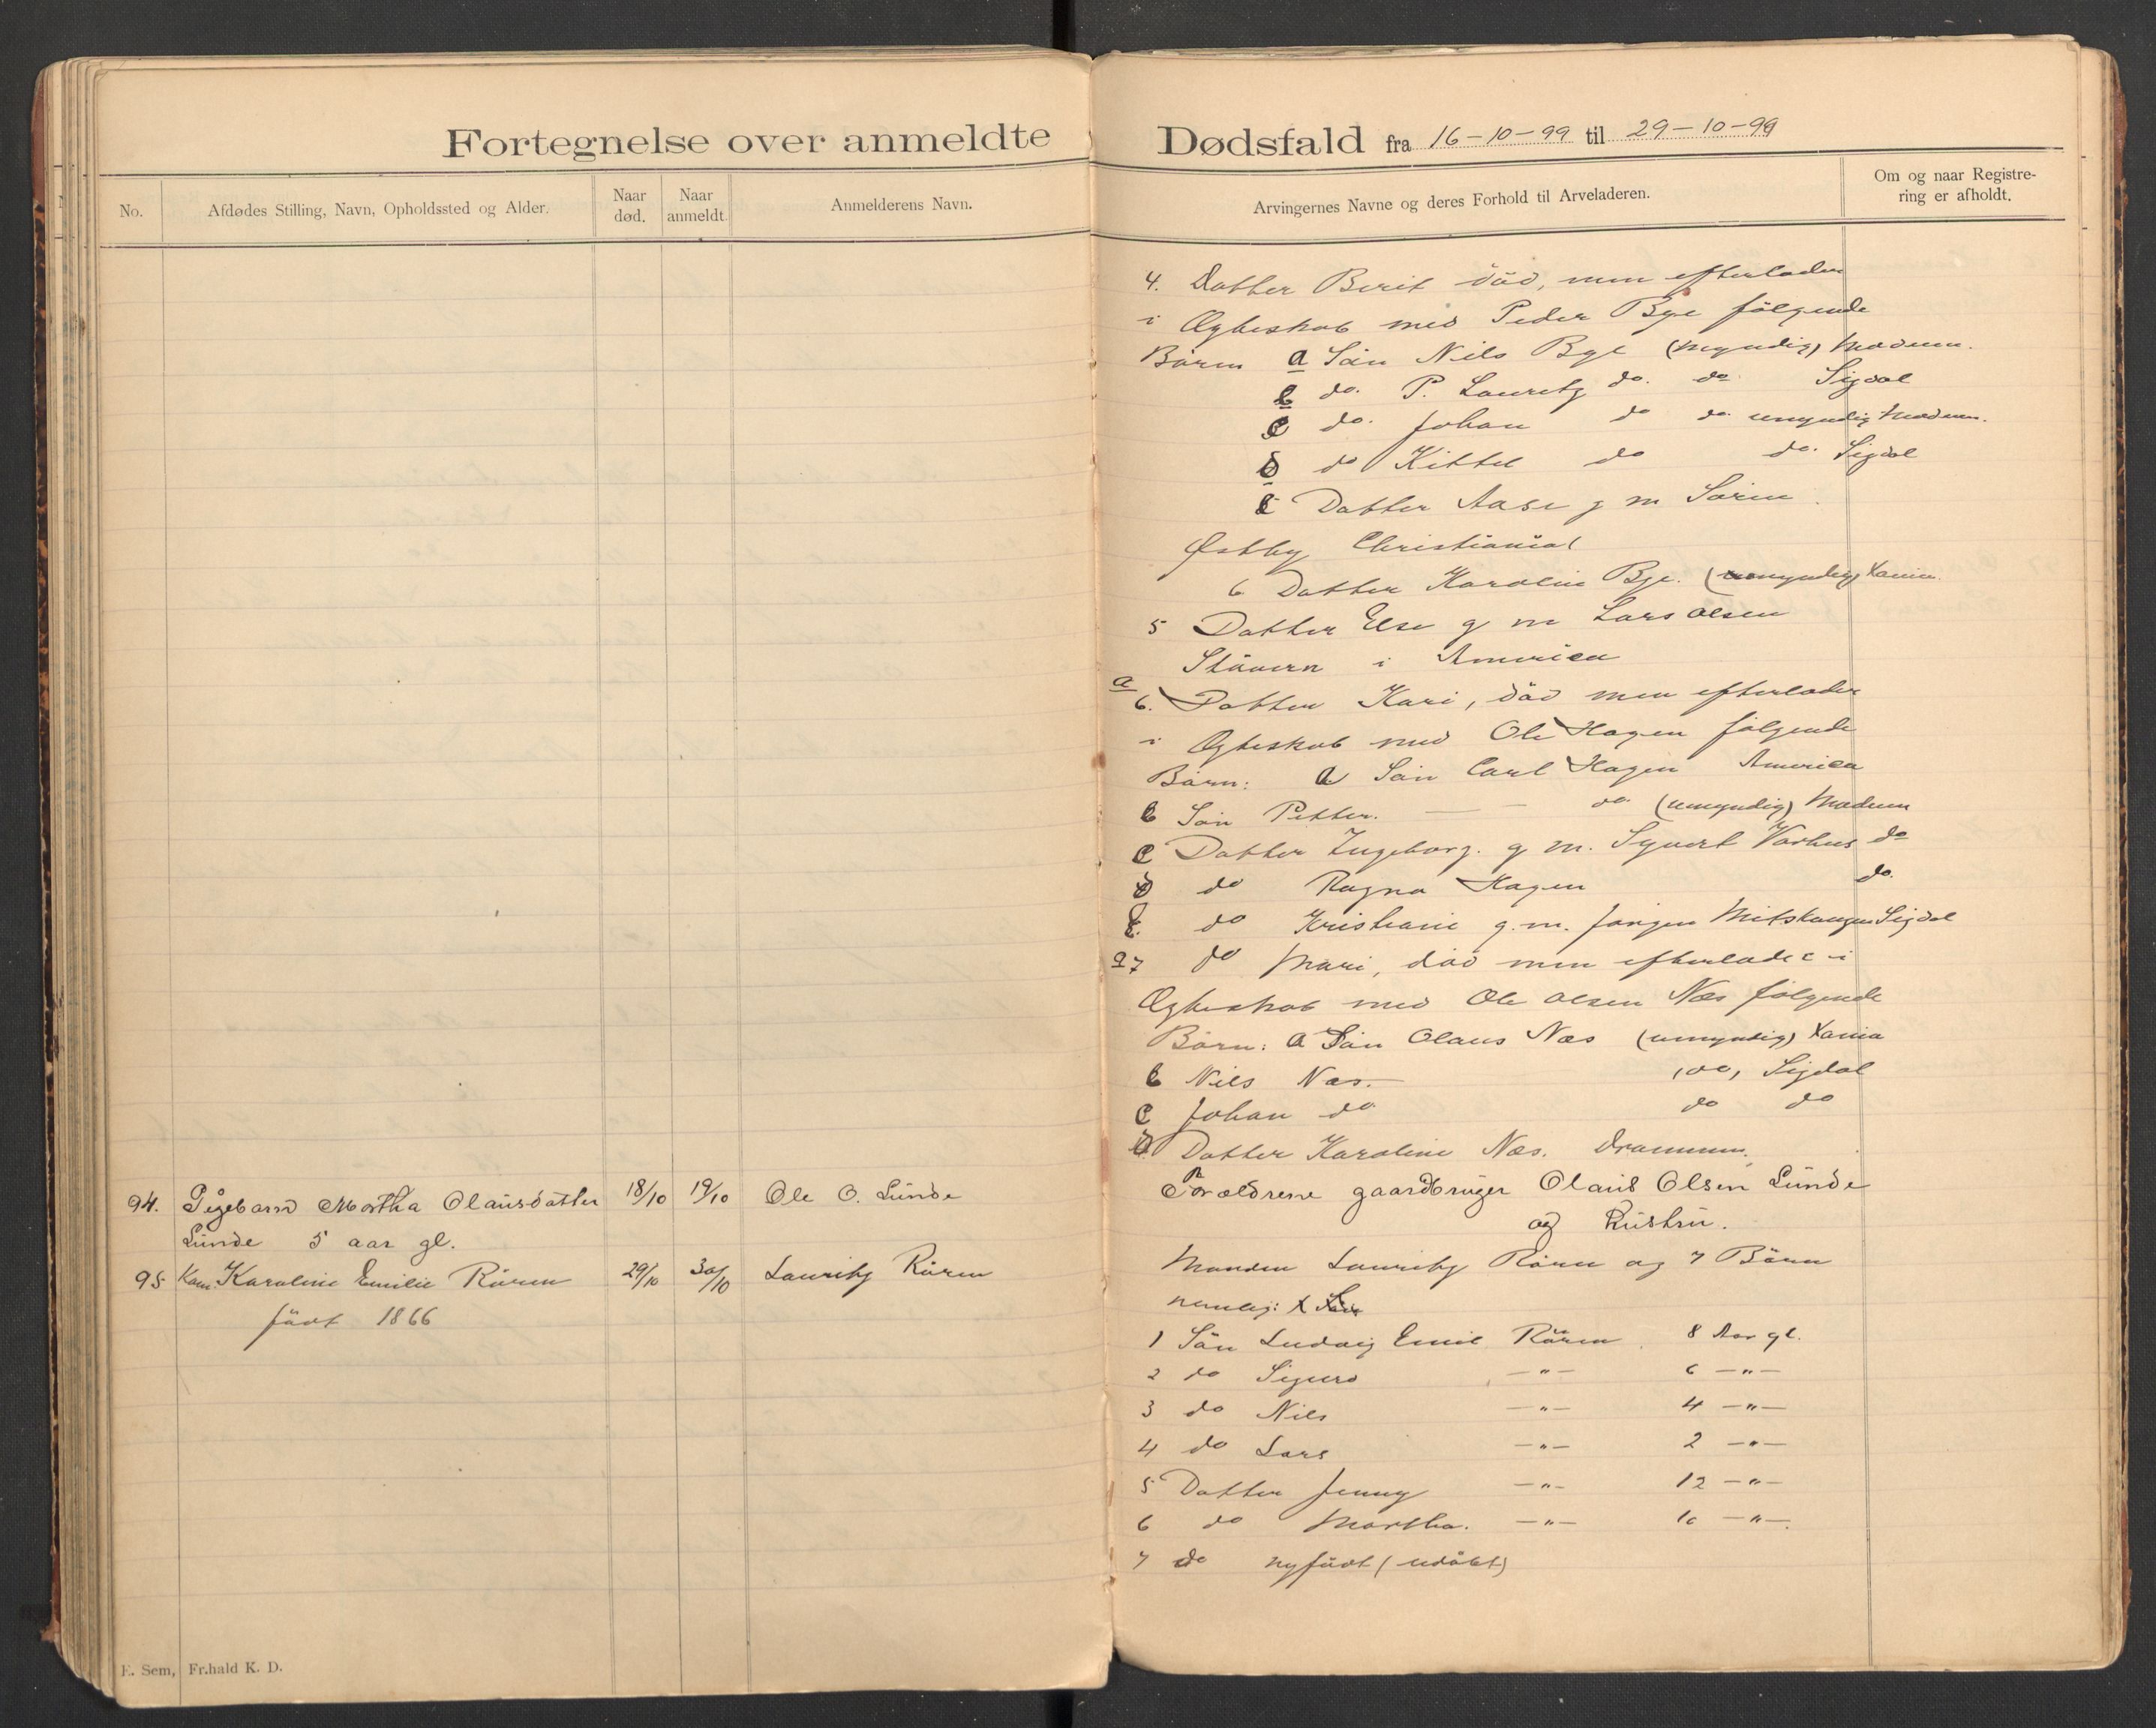 Fortegnelse over anmeldte Dødsfald fra 16-10-99 til 29-10-99
No.
Afdødes Stilling, Navn, Opholdssted og Alder.
Naar død.
Naar anmeldt.
Anmelderens Navn.
Arvingernes Navne og deres Forhold til Arveladeren.
Om og naar Registre-
ring er afholdt.
4. Datter Berit död, men efterlader
i Ægteskab med Peder Bye fölgende
Börn a Sön Nils Bye (myndig) Modum.
b do. P. Lauritz do. do Sigdal
c do. Johan do do. umyndig Modum.
d do Kittel do do. Sigdal
e Datter Aase g m Sören
Østby Christiania
6 Datter Karoline Bye. (umyndig) Xania
5 Datter Else g m Lars Olsen
Stävern i America
a
6. Datter Kari, död men efterlader
i Ægteskab med Ole Hagen fölgende
Börn: a Sön Carl Hagen America
b Sön Petter. — — do. (umyndig) Modum
c Datter Ingeborg. g m. Syvert Varhus do
d do Ragna Hagen do.
e. do Kristiane g. m. Jörgen Mitskaugen Sigdal
a7 do Mari, död men efterlader i
Ægteskab med Ole Olsen Næs fölgende
Börn: a Sön Olaus Næs (umyndig) Xania
b Nils Næs. — do, Sigdal
c Johan do do do
d. Datter Karoline Næs. Drammen.
94. Pigebarn Martha Olausdatter 18/10 19/10 Ole O. Lunde
Lunde 5 aar gl.
Forældrene gaardbruger Olaus Olsen Lunde
og Hustru.
95 Kone Karoline Emilie Rören 29/10 30/10 Lauritz Rören
födt 1866
Manden Lauritz Rören og 7 Börn
nemlig: 1 Sön
1 Sön Ludvig Emil Rören 8 Aar gl.
2 do Sigurd —"— 6 —"—
3 do Nils —"— 4 —"—
4 do Lars —"— 2 —"—
5 Datter Jenny —"— 12 —"—
6 do Martha. —"— 10 —"—.
7 do nyfödt (udöbt)
E. Sem, Fr.hald K. D.